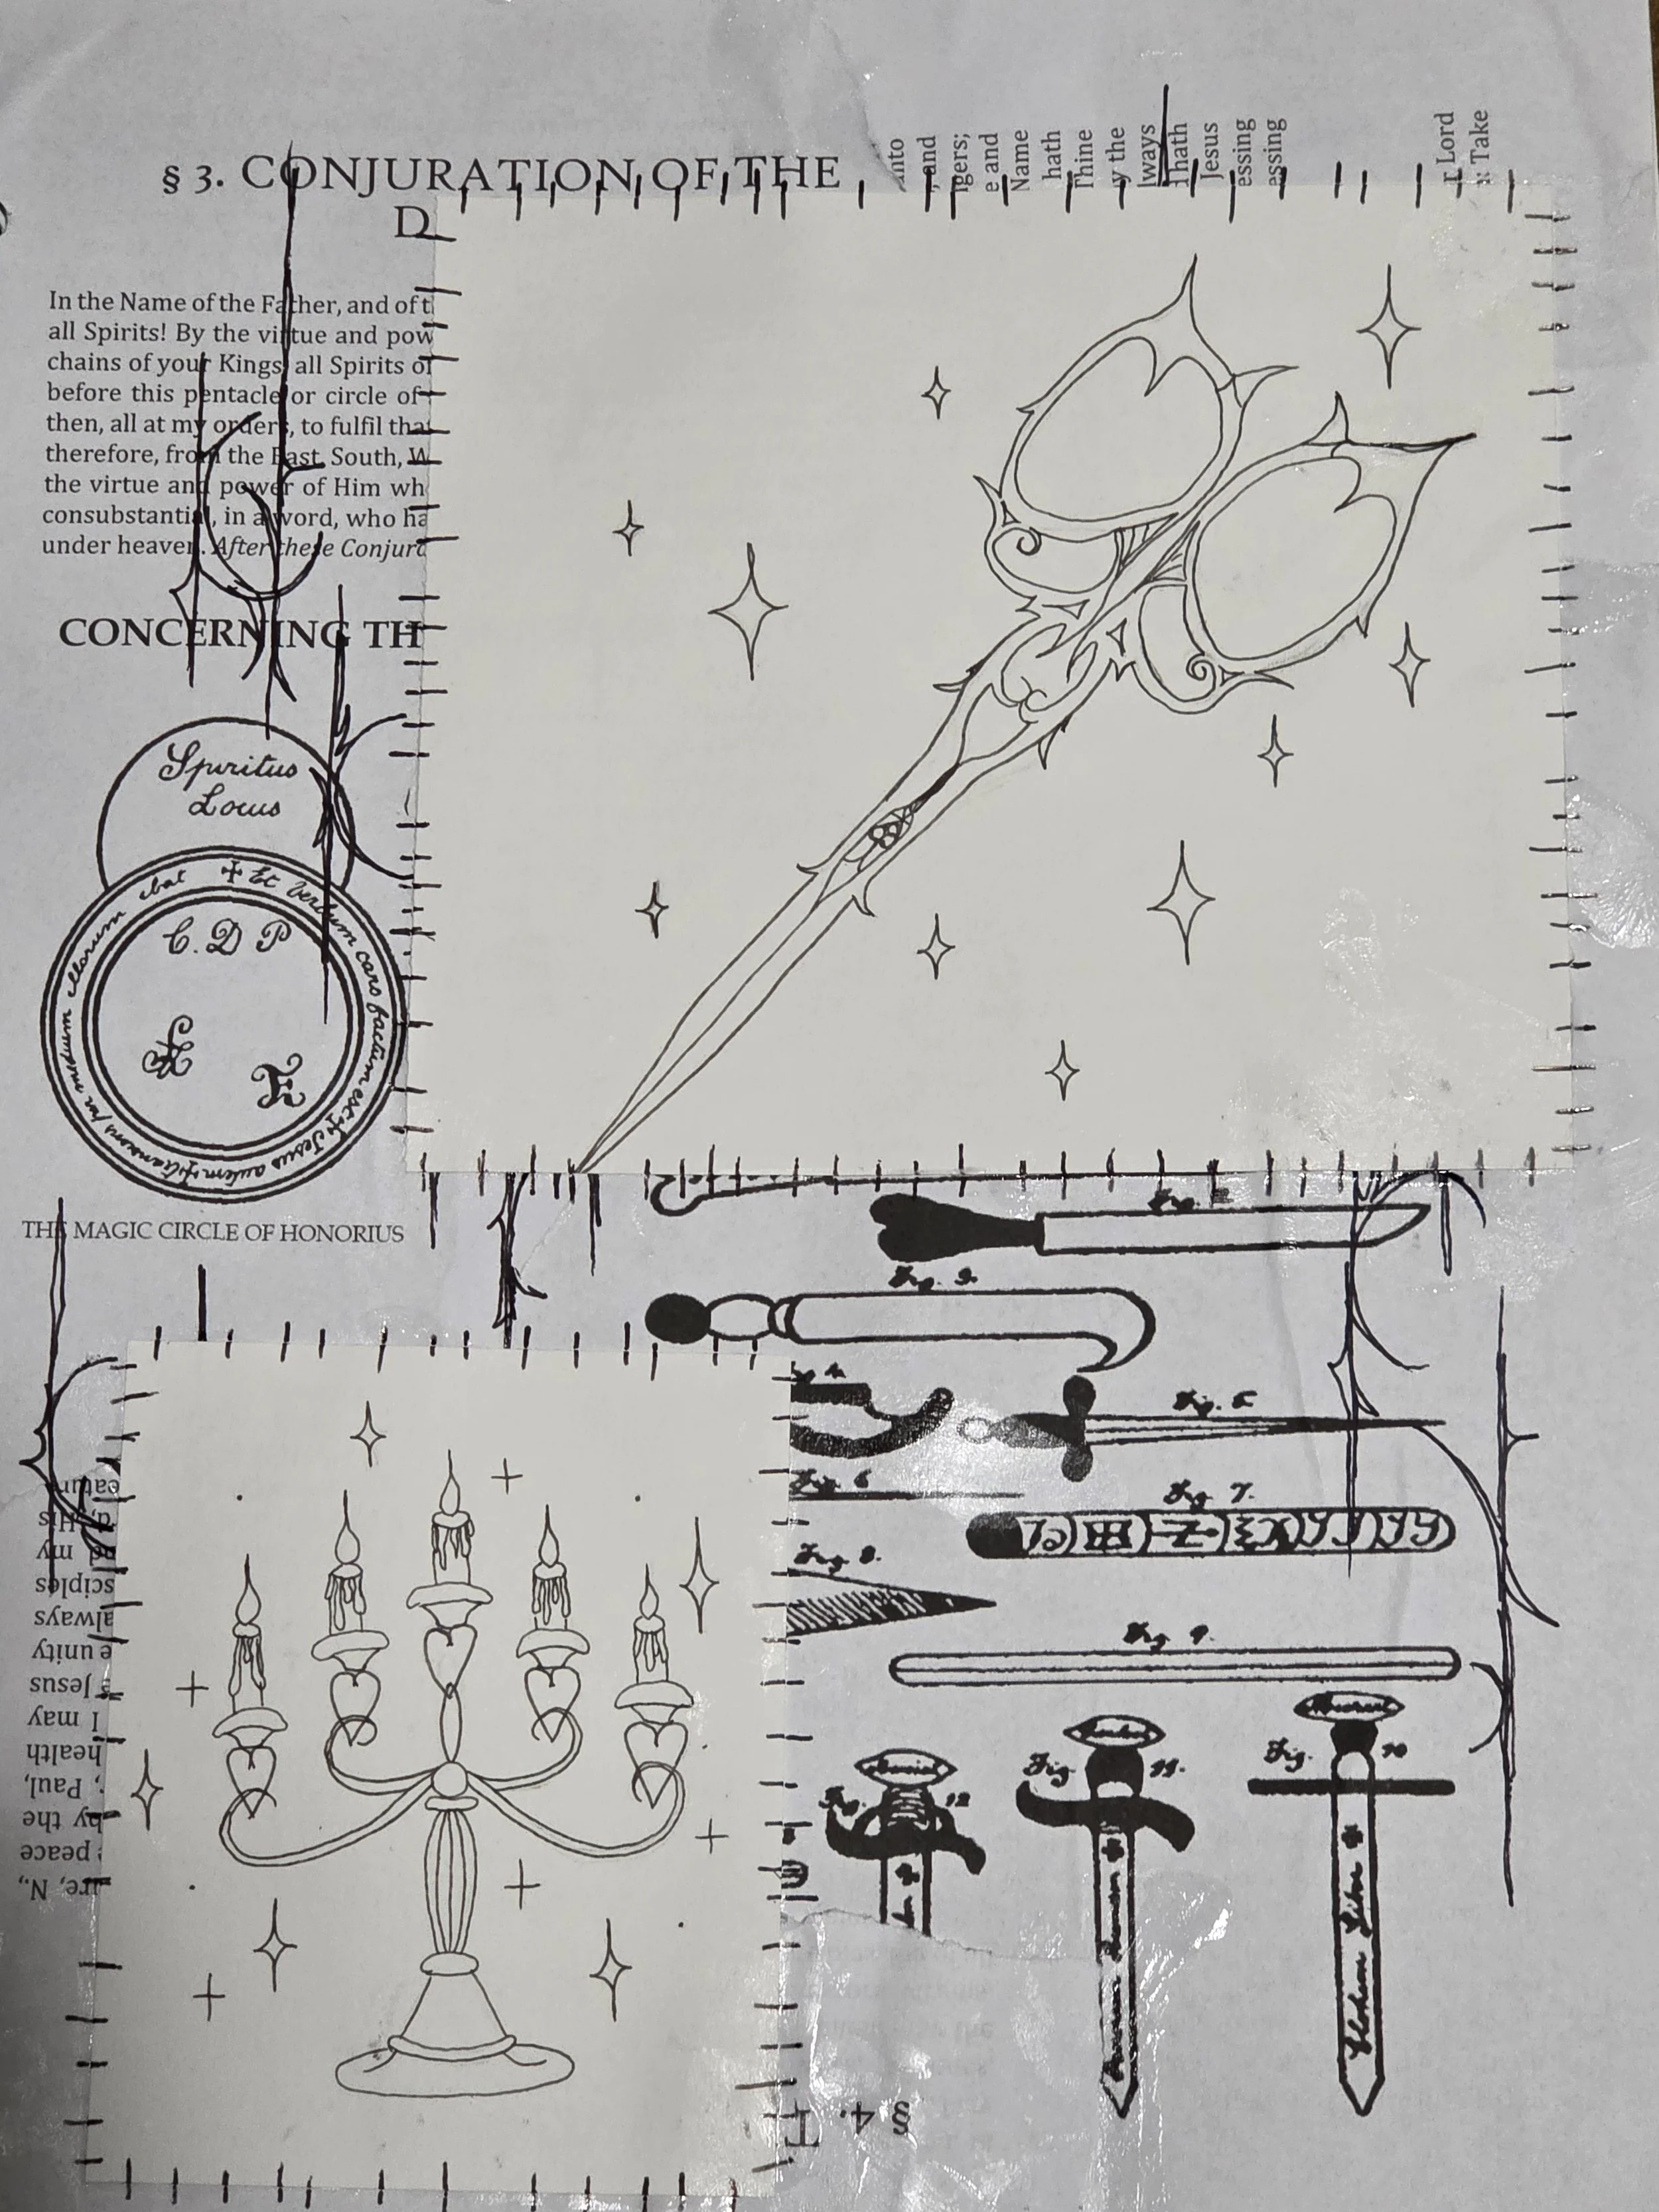 § 3. CONJURATION OF THE
D
into
, and
igers;
e and
Name
hath
Thine
y the
lways
Jesus
essing
essing
r Lord
Take
In the Name of the Father, and of t
all Spirits! By the virtue and pow
chains of your Kings, all Spirits of
before this pentacle or circle of
then, all at my orders, to fulfil tha
therefore, from the East, South, W
the virtue and power of Him wh
consubstantial, in a word, who ha
under heaven. After these Conjura
CONCERNING TH
Spiritus
Locus
✠ Et Verbum caro factum est ✠ Jesus autem
illorum ibat
C. D P
THE MAGIC CIRCLE OF HONORIUS
Fig. 3.
Fig. 5
Fig. 6
Fig. 7.
Fig. 8.
Fig. 9.
Fig. 12
Fig. 11.
Fig. 10
d, His
nd my
sciples
always
e unity
Jesus
I may
health
, Paul,
by the
peace
N.,
§ 4. T